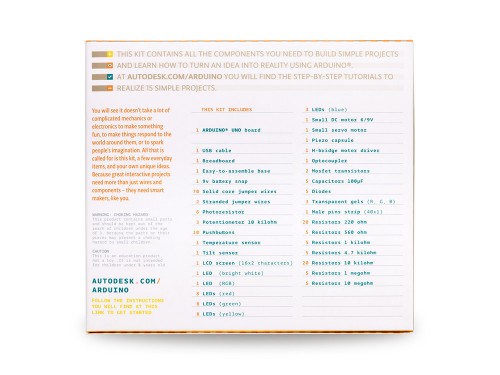 THIS KIT CONTAINS ALL THE COMPONENTS YOU NEED TO BUILD SIMPLE PROJECTS
AND LEARN HOW TO TURN AN IDEA INTO REALITY USING ARDUINO®.
AT AUTODESK.COM/ARDUINO YOU WILL FIND THE STEP-BY-STEP TUTORIALS TO
REALIZE IS SIMPLE PROJECTS.
You will see it doesn't take a lot of
complicated mechanics or
electronics to make something
fun, to make things respond to the
world around them, or to spark
people's imagination. All that is
called for is this kit, a few everyday
items, and your own unique ideas.
Because great interactive projects
need more than just wires and
components – they need smart
makers, like you.
WARNING: CHOKING HAZARD
This product contains small parts
and should be kept out of the
reach of children under the age
CAUTION
This is an education product,
not a toy. It is not intended
for children under 8 years old.
AUTODESK.COM/
ARDUINO
FOLLOW THE INSTRUCTIONS
YOU WILL FIND AT THIS
LINK TO GET STARTED
THIS KIT INCLUDES
1 ARDUINO® UNO board
1 USB cable
1 Breadboard
1 Easy-to-assemble base
1 9v battery snap
70 Solid core jumper wires
2 Stranded jumper wires
Photoresistor
Potentiometer 10 kilohm
10 Pushbuttons
1 Temperature sensor
1 Tilt sensor
1 LCD screen (16x2 characters)
1 LED (bright white)
1 LED (RGB)
8 LEDs (red)
8 LEDs (green)
8 LEDs (yellow)
LEDs (blue)
1 Small DC motor 6/9V
1 Small servo motor
1 Piezo capsule
1 H-bridge motor driver
Optocoupler
Mosfet transistors
Capacitors 100µF
Diodes
3 Transparent gels (R, G, B)
1 Male pins strip (40x1)
20 Resistors 220 ohm
5 Resistors 560 ohm
5 Resistors 1 kilohm
5 Resistors 4.7 kilohm
20 Resistors 10 kilohm
5 Resistors 1 megohm
5 Resistors 10 megohm